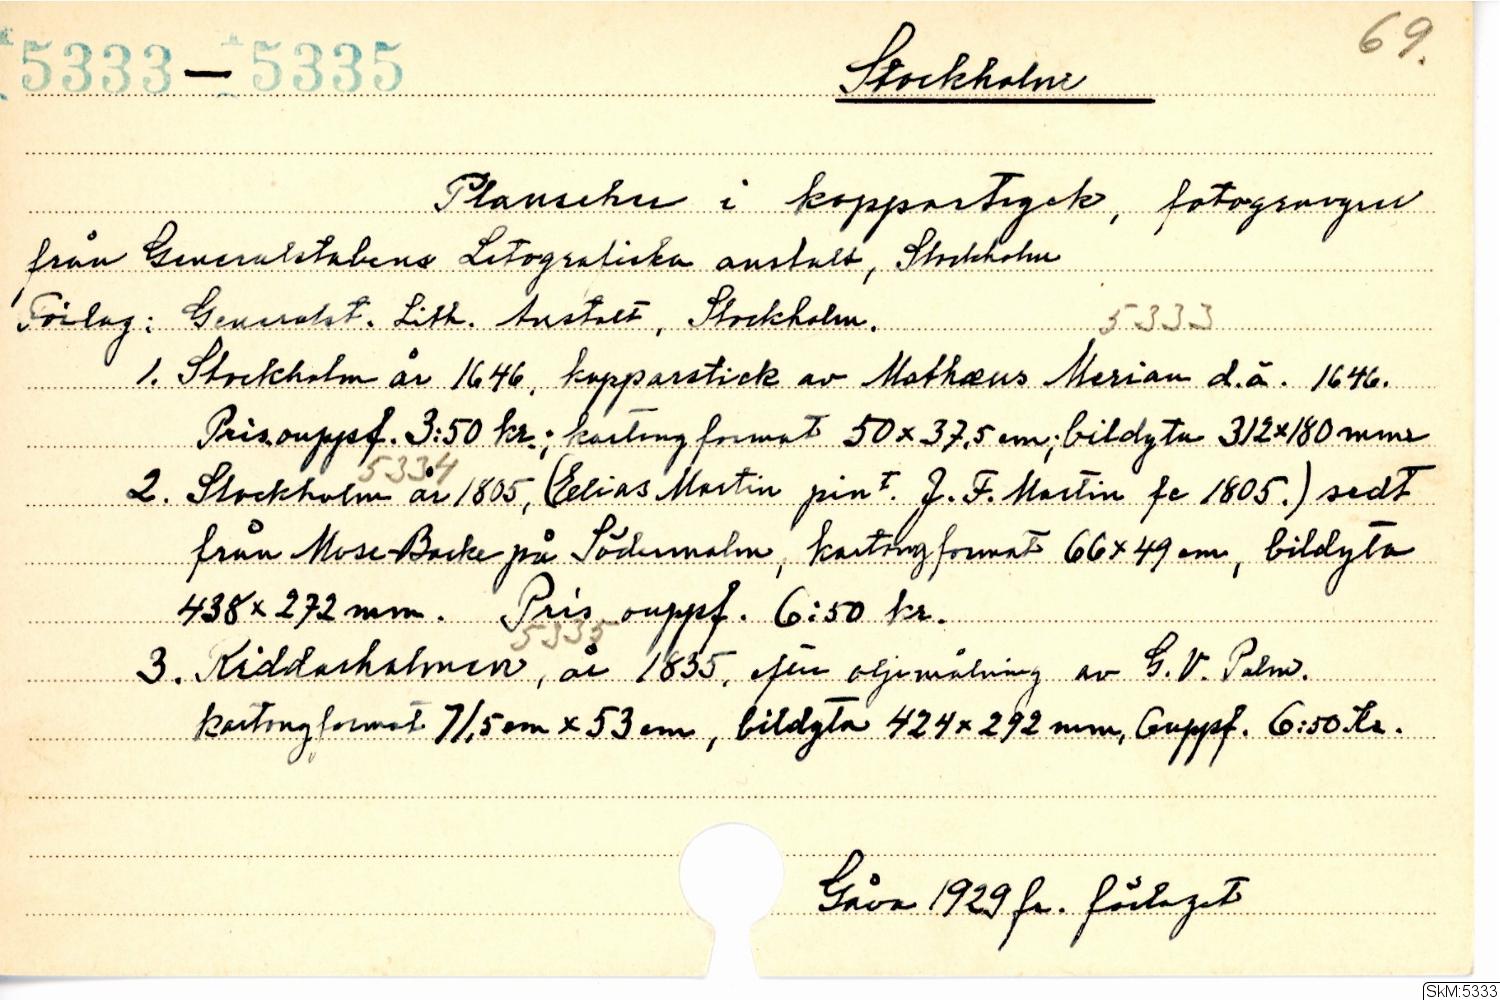 5333 — 5335
69.
Stockholm
Planscher i koppartryck, fotogravyrer
från Generalstabens Litografiska anstalt, Stockholm
Förlag: Generalst. Lith. Anstalt, Stockholm.
5333
1. Stockholm år 1646, kopparstick av Mathæus Merian d.ä. 1646.
Pris ouppf. 3:50 kr.; kartongformat 50 x 37,5 cm; bildyta 312x180 mm
5334
2. Stockholm år 1805, (Elias Martin pint. J. F. Martin fc 1805.) sedt
från Mose-Backe på Södermalm, kartongformat 66 x 49 cm, bildyta
438 x 272 mm. Pris ouppf. 6:50 kr.
5335
3. Riddarholmen, år 1835, efter oljemålning av G. V. Palm.
kartongformat 71,5 cm x 53 cm, bildyta 424 x 292 mm, Ouppf. 6:50 Kr.
Gåva 1929 fr. förlaget
SkM:5333